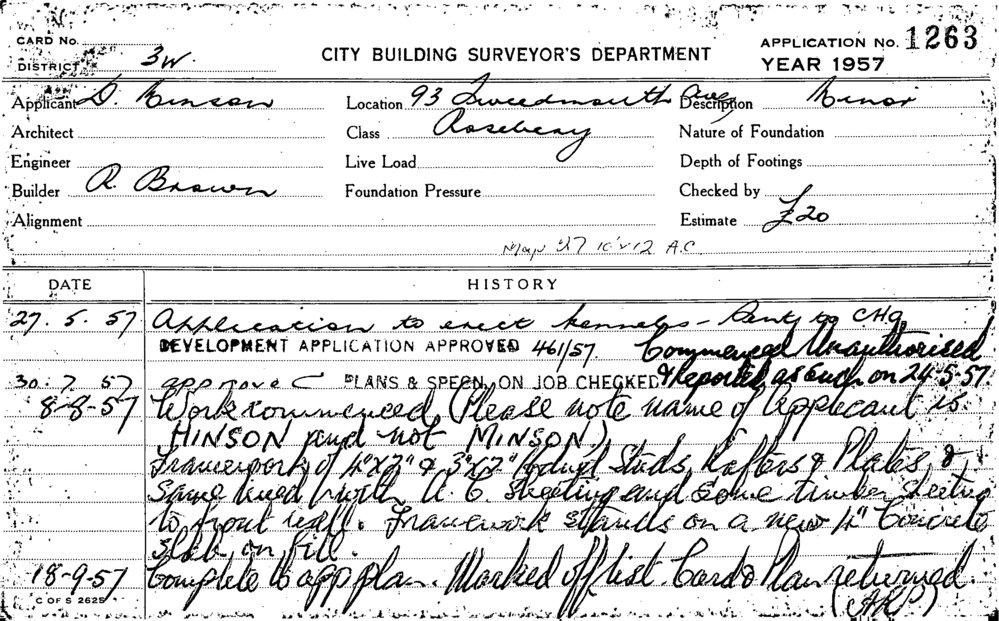 CARD No.
DISTRICT 3W.
CITY BUILDING SURVEYOR'S DEPARTMENT
APPLICATION No. 1263
YEAR 1957
Applicant D. Minson
Location 93 Tweedmouth Ave,
Description Minor
Architect
Class Rosebery
Nature of Foundation
Engineer
Live Load
Depth of Footings
Builder R. Brown
Foundation Pressure
Checked by
Alignment
Estimate £20
10'x12 A.C.
DATE
HISTORY
27. 5. 57 Application to erect kennels - to CHQ
DEVELOPMENT APPLICATION APPROVED 461/57. Commenced Unauthorised
& Reported as such on 24-5-57.
30. 7 57 approved PLANS & SPECN. ON JOB CHECKED
8-8-57 Work commenced, (Please note name of applicant is
HINSON and not MINSON)
Framework of 4"x2" & 3"x2" Studs, Rafters & Plates, &
same lined with A. C. Sheeting and some timber sheeting
to front wall. Framework stands on a new 4" Concrete
Slab on fill.
18-9-57 Complete to app plan. Marked off list. Card & Plan returned.
(AKP)
C OF S 2625